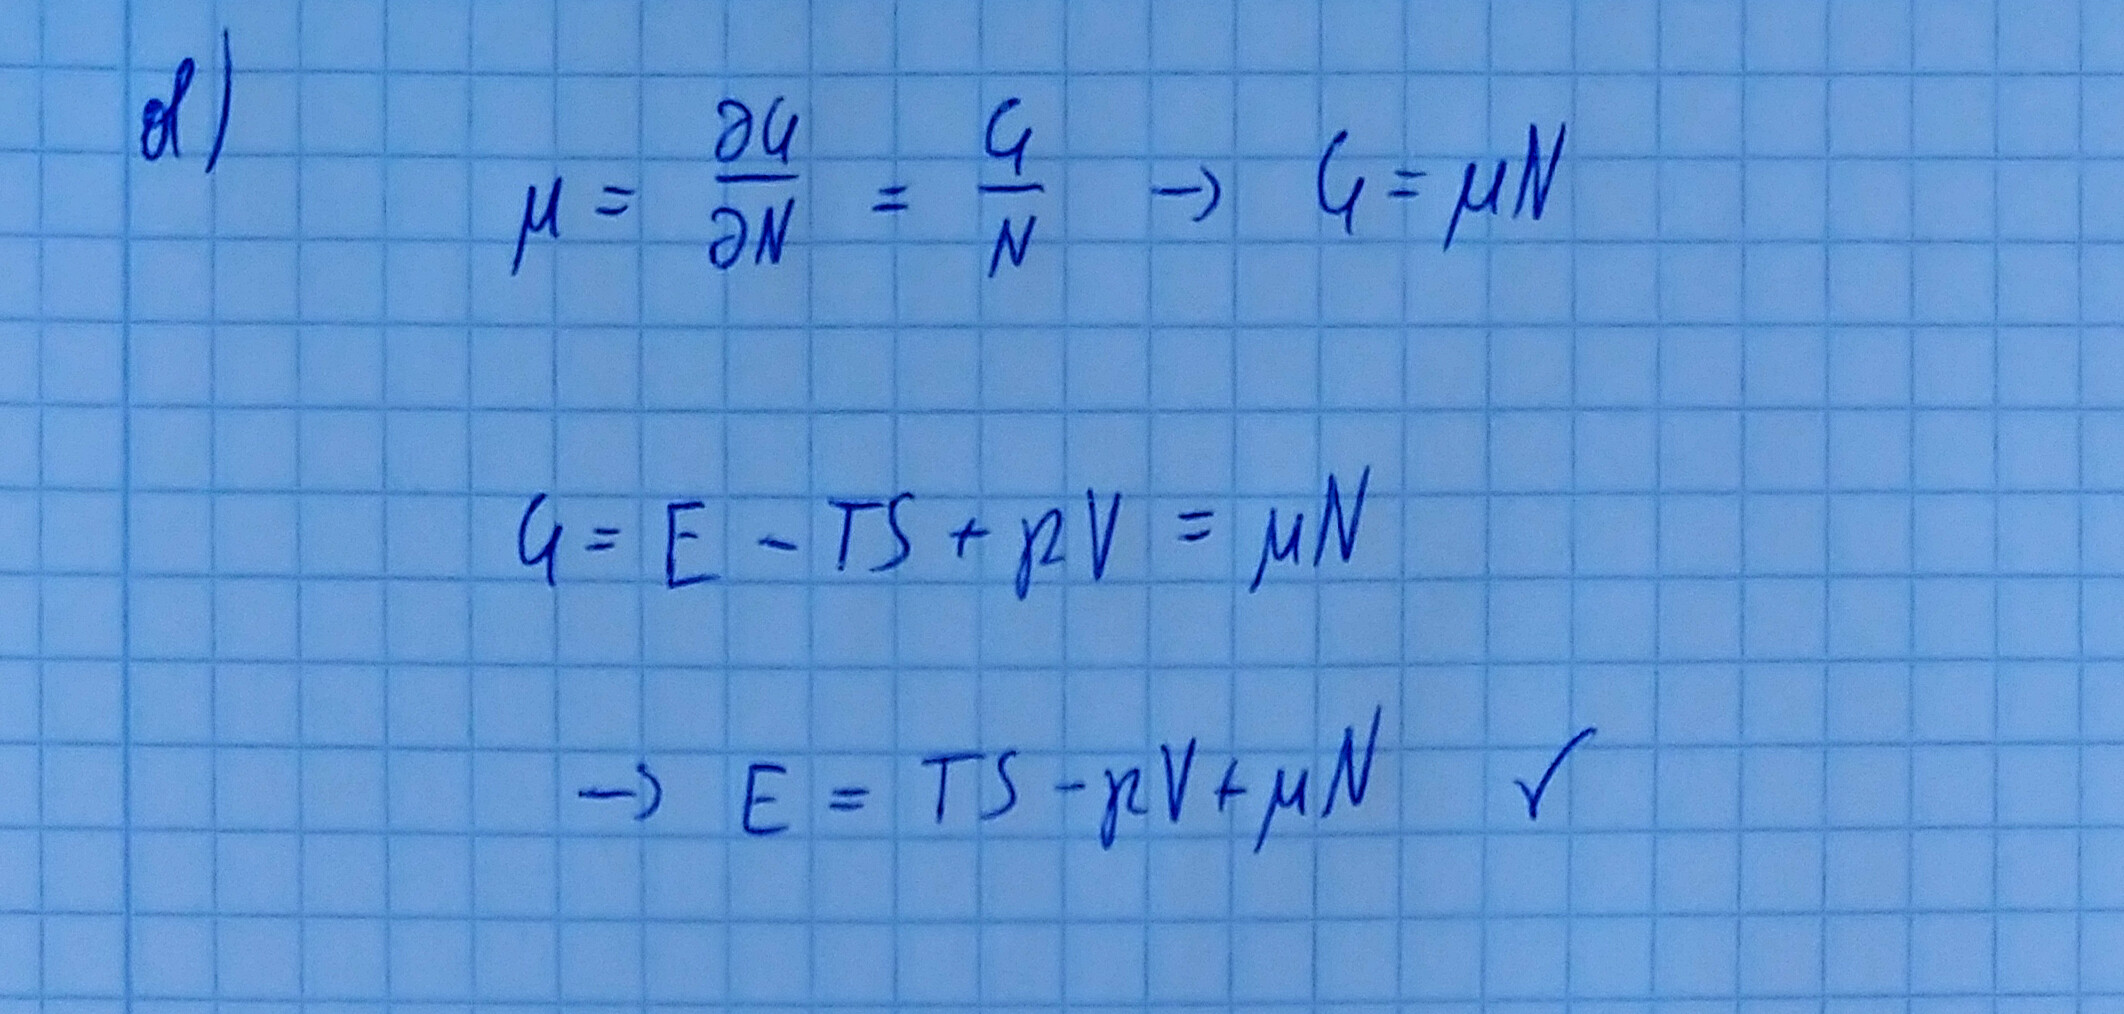 d) μ = ∂G/∂N = G/N → G = μN
G = E - TS + pV = μN
→ E = TS - pV + μN ✓